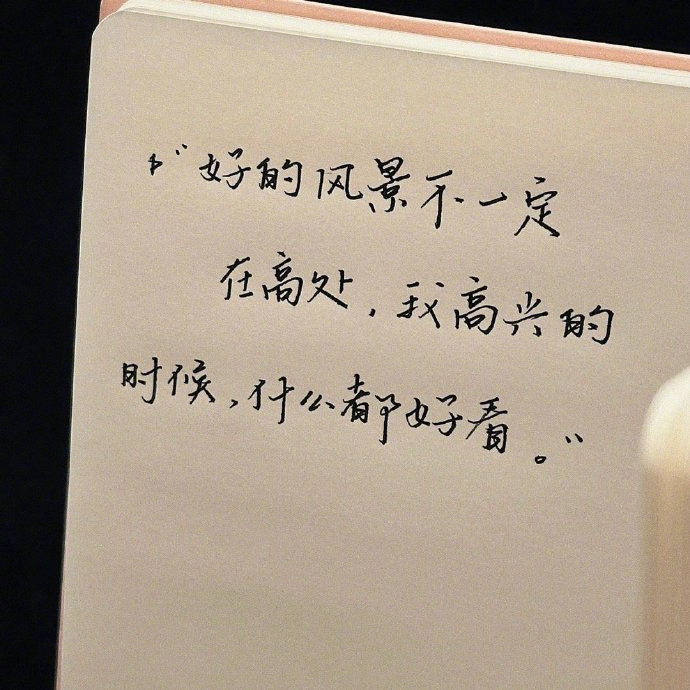 “好的风景不一定
在高处，我高兴的
时候，什么都好看。”